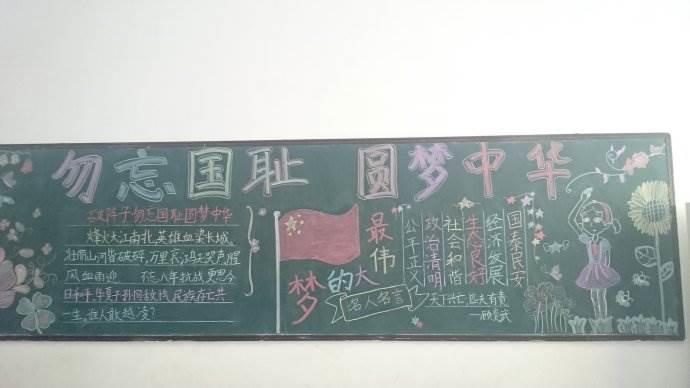 勿忘国耻 圆梦中华
勿忘国耻圆梦中华
烽火大江南北,英雄血染长城
壮丽山河皆破碎,万里哀鸿尽哭声腥
风血雨迎 不忘八年抗战更思今
日和平 民族存亡共
一生,
国泰民安
经济发展
生态良好
社会和谐
政治清明
公平正义
最伟大的梦
名人名言
天下兴亡,匹夫有责
—顾炎武